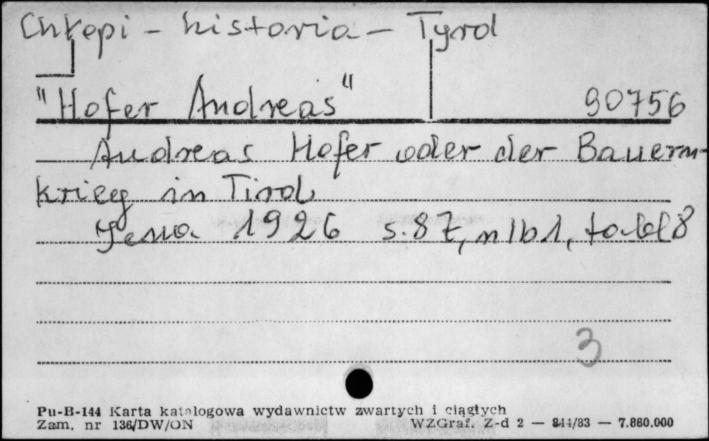 Chłopi - historia - Tyrol
"Hofer Andreas" 90756
Andreas Hofer oder der Bauern-
krieg in Tirol
Jena 1926 s. 87, nlb 1, tabl 8
3
Pu-B-144 Karta katalogowa wydawnictw zwartych i ciągłych
Zam. nr 136/DW/ON WZGraf. Z-d 2 — 844/83 — 7.860.000